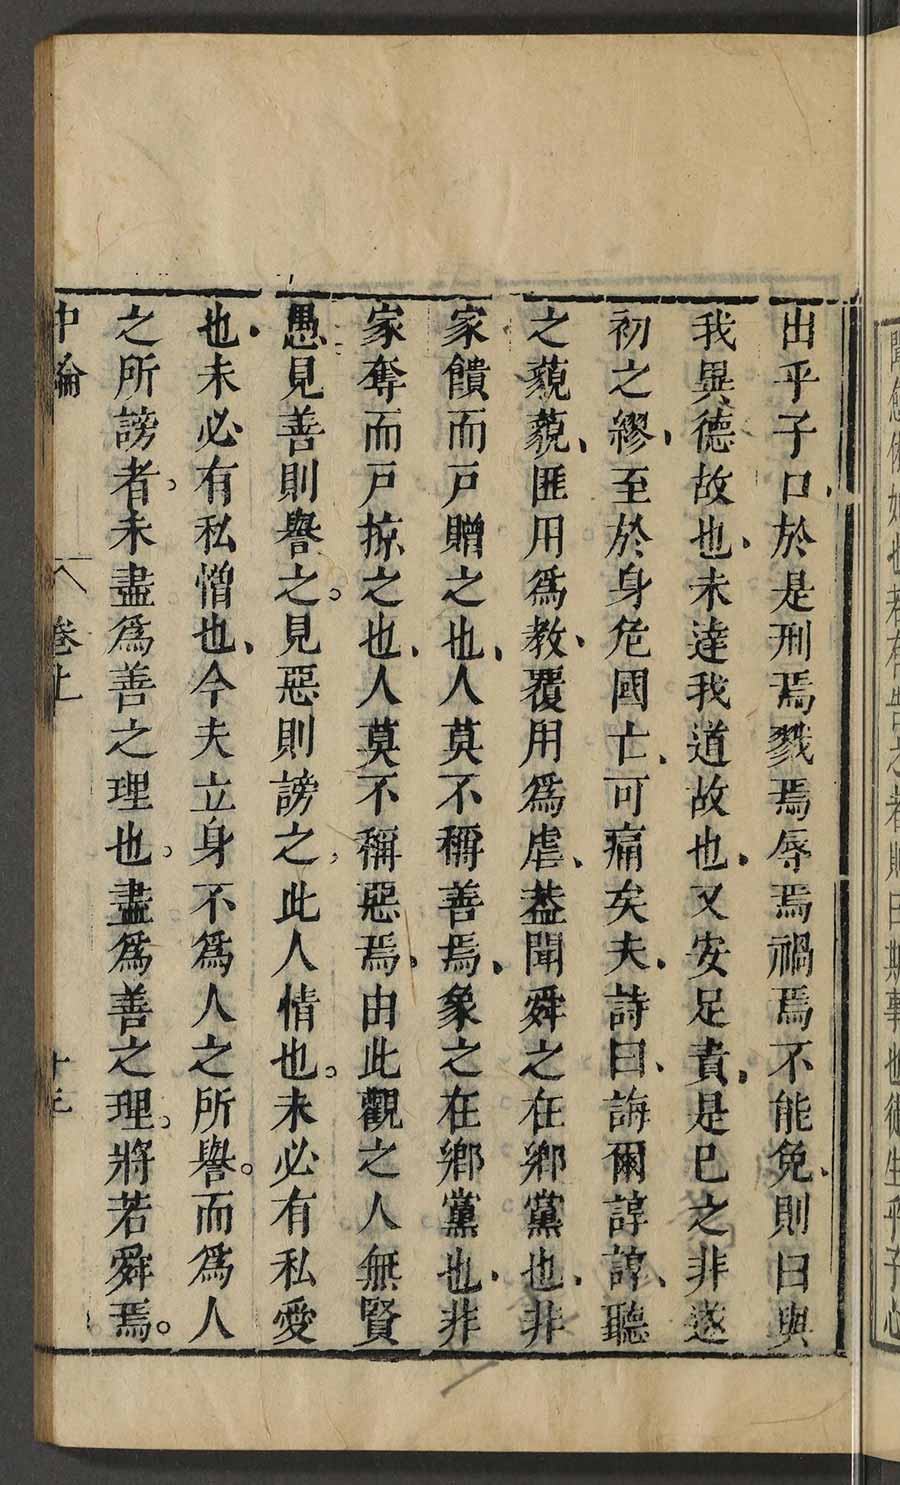 出乎子口、於是刑焉戮焉辱焉禍焉不能免、則曰與
我異德故也、未達我道故也、又安足責、是己之非遂
初之繆、至於身危國亡、可痛矣夫、詩曰、誨爾諄諄、聽
之藐藐、匪用爲教、覆用爲虐、葢聞舜之在鄉黨也、非
家饋而戸贈之也、人莫不稱善焉、象之在鄉黨也、非
家奪而戸掠之也、人莫不稱惡焉、由此觀之人無賢
愚見善則譽之。見惡則謗之、此人情也。未必有私愛
也、未必有私憎也、今夫立身不爲人之所譽。而爲人
之所謗者。未盡爲善之理也。盡爲善之理。將若舜焉。
中論 卷上